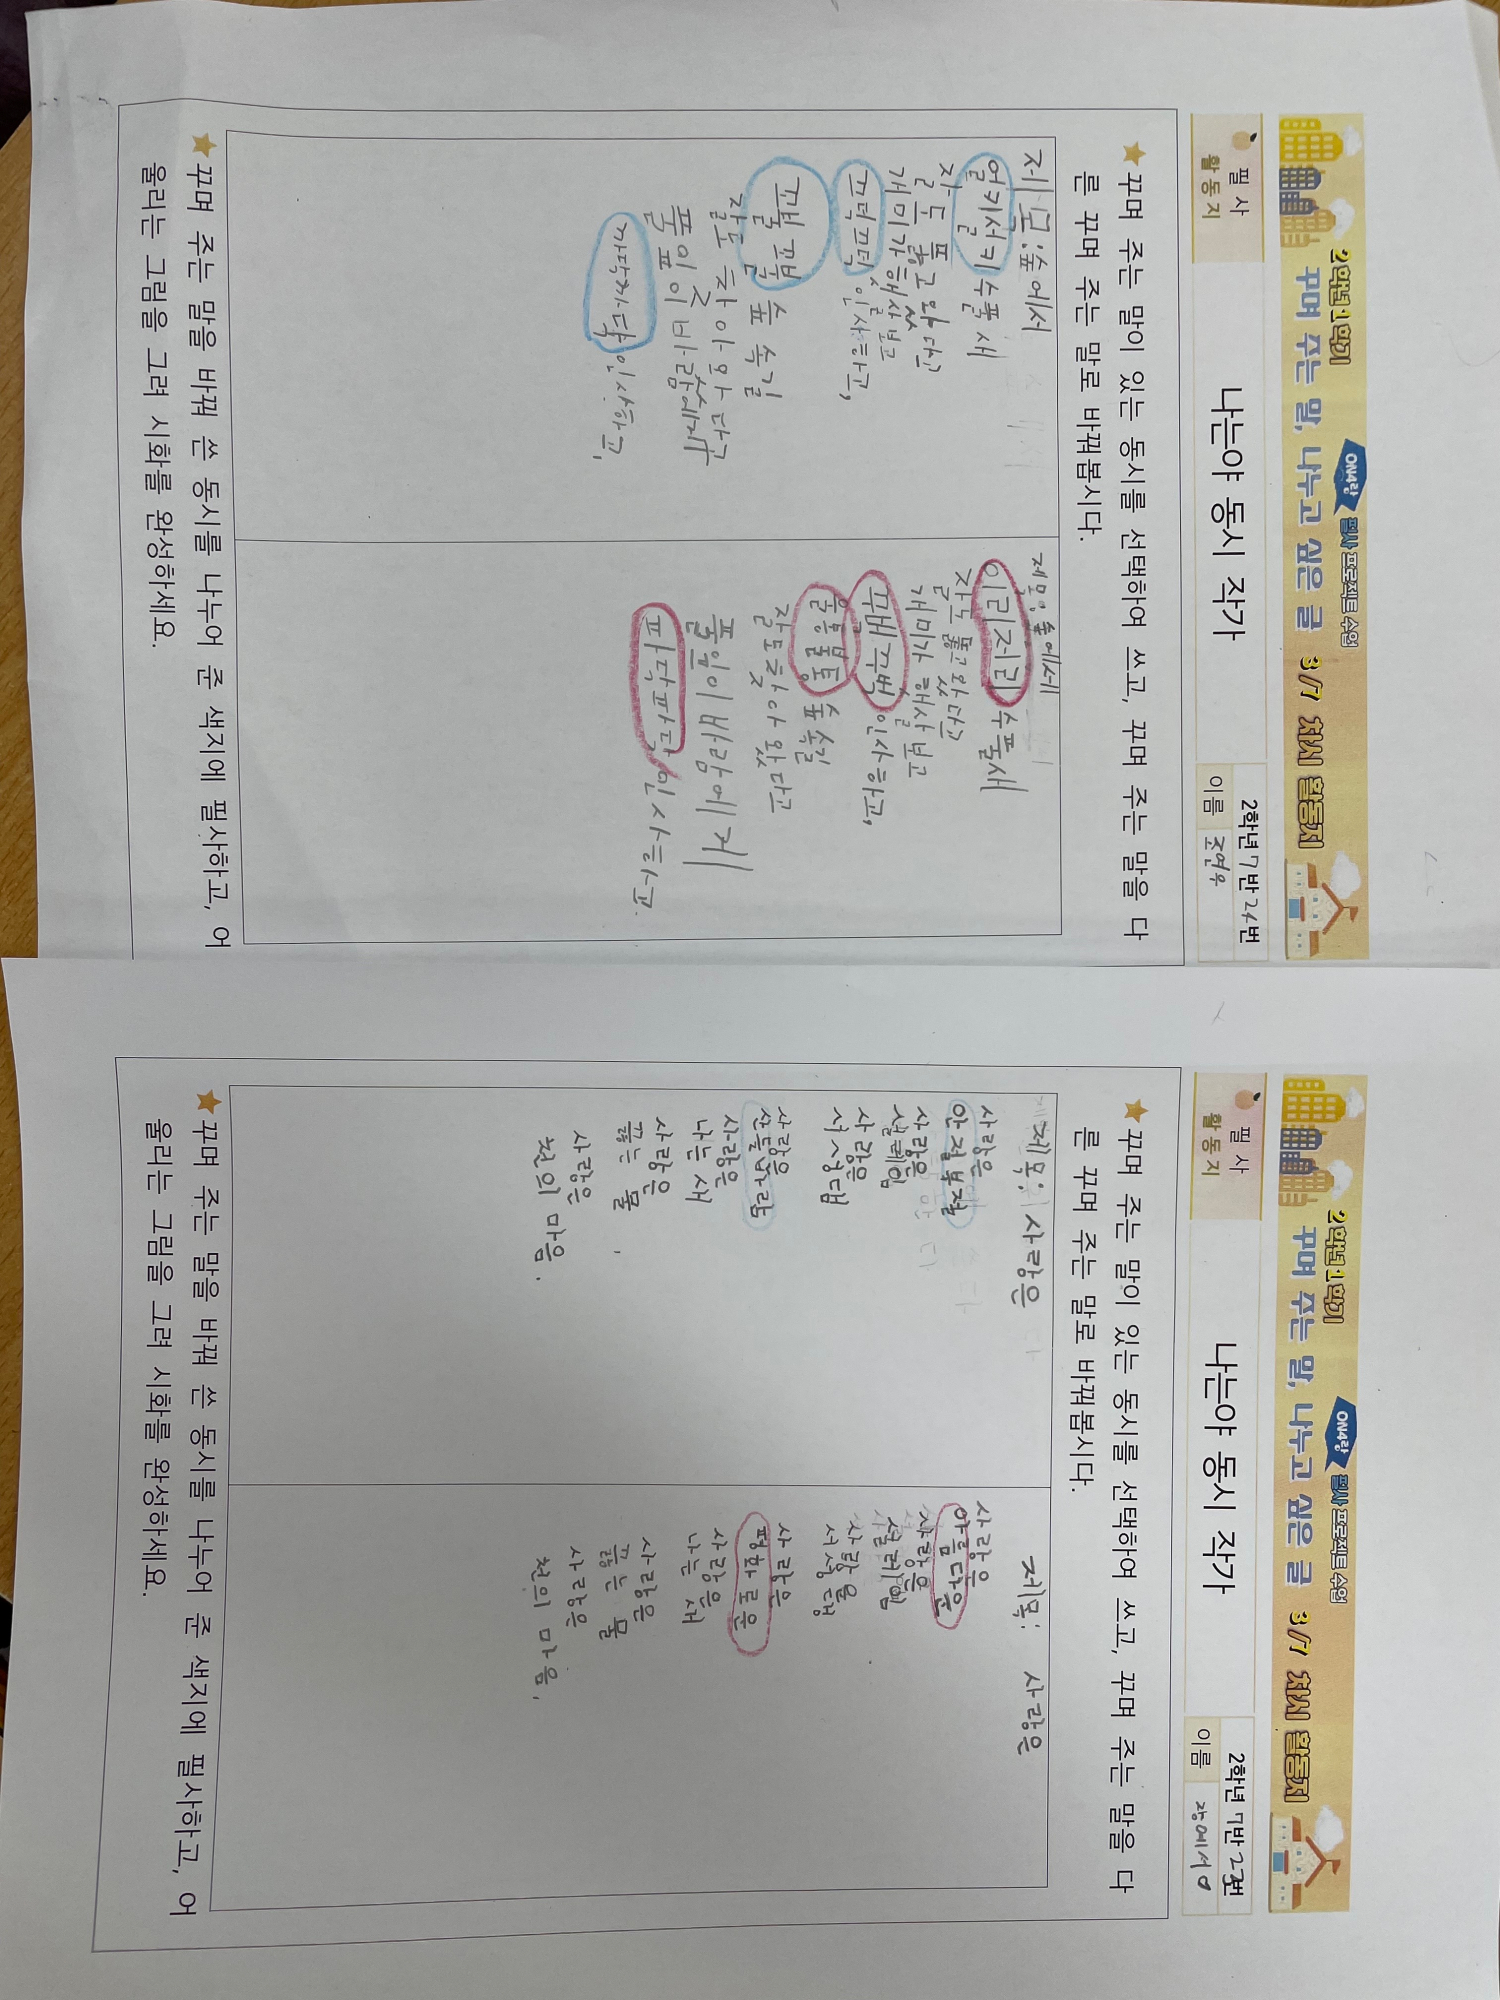 2학년 1학기
ON4랑 필사 프로젝트 수업
꾸며 주는 말, 나누고 싶은 글 3/7 차시 활동지
필사
활동지
나는야 동시 작가
2학년 7반 24번
이름 조연우
꾸며 주는 말이 있는 동시를 선택하여 쓰고, 꾸며 주는 말을 다
른 꾸며 주는 말로 바꿔봅시다.
제목:숲에서
얼키설키 수풀 새
잘도 뚫고 왔다고
개미가 햇살 보고
끄덕끄덕 인사하고,
꼬불꼬불 숲 속길
잘도 찾아 왔다고
풀잎이 바람에게
까닥까닥 인사하고,
제목: 숲에서
이리저리 수풀새
잘도 뚫고 왔다고
개미가 햇살 보고
꾸벅꾸벅 인사하고,
울퉁불퉁 숲 속길
잘도 찾아 왔다고
풀잎이 바람에게
파닥파닥 인사하고.
꾸며 주는 말을 바꿔 쓴 동시를 나누어 준 색지에 필사하고, 어
울리는 그림을 그려 시화를 완성하세요.
2학년 1학기
ON4랑 필사 프로젝트 수업
꾸며 주는 말, 나누고 싶은 글 3/7 차시 활동지
필사
활동지
나는야 동시 작가
2학년 7반 23번
이름 장예서
꾸며 주는 말이 있는 동시를 선택하여 쓰고, 꾸며 주는 말을 다
른 꾸며 주는 말로 바꿔봅시다.
제목: 사랑은
사랑은
안절부절
사랑은
설레임
사랑은
서성댐
사랑은
산들바람
사랑은
나는 새
사랑은
끓는 물
사랑은
천의 마음.
제목: 사랑은
사랑은
아름다운
사랑은
설레임
사랑을
서성댐
사랑은
평화로운
사랑은
나는 새
사랑은
끓는 물
사랑은
천의 마음.
꾸며 주는 말을 바꿔 쓴 동시를 나누어 준 색지에 필사하고, 어
울리는 그림을 그려 시화를 완성하세요.